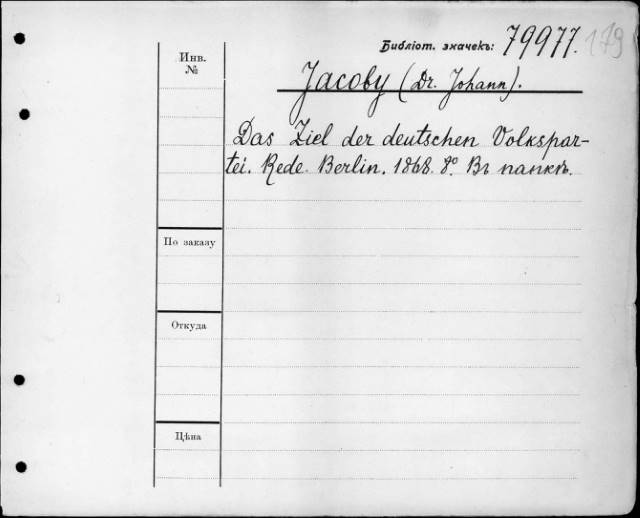 Библіот. значекъ: 79977. 179
Инв.
№
Jacoby (Dr. Johann).
Das Ziel der deutschen Volkspar-
tei. Rede. Berlin. 1868. 8º. Въ папкѣ.
По заказу
Откуда
Цѣна